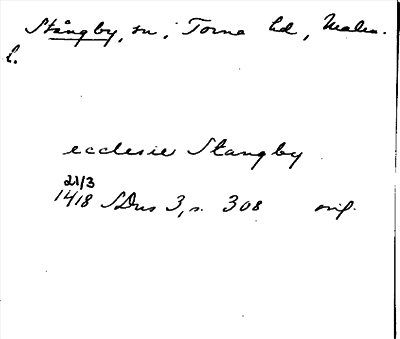 Stångby, sn, Torna hd, Malm.
l.
ecclesie Stangby
21/3
1418 SDns 3, s. 308 orig.